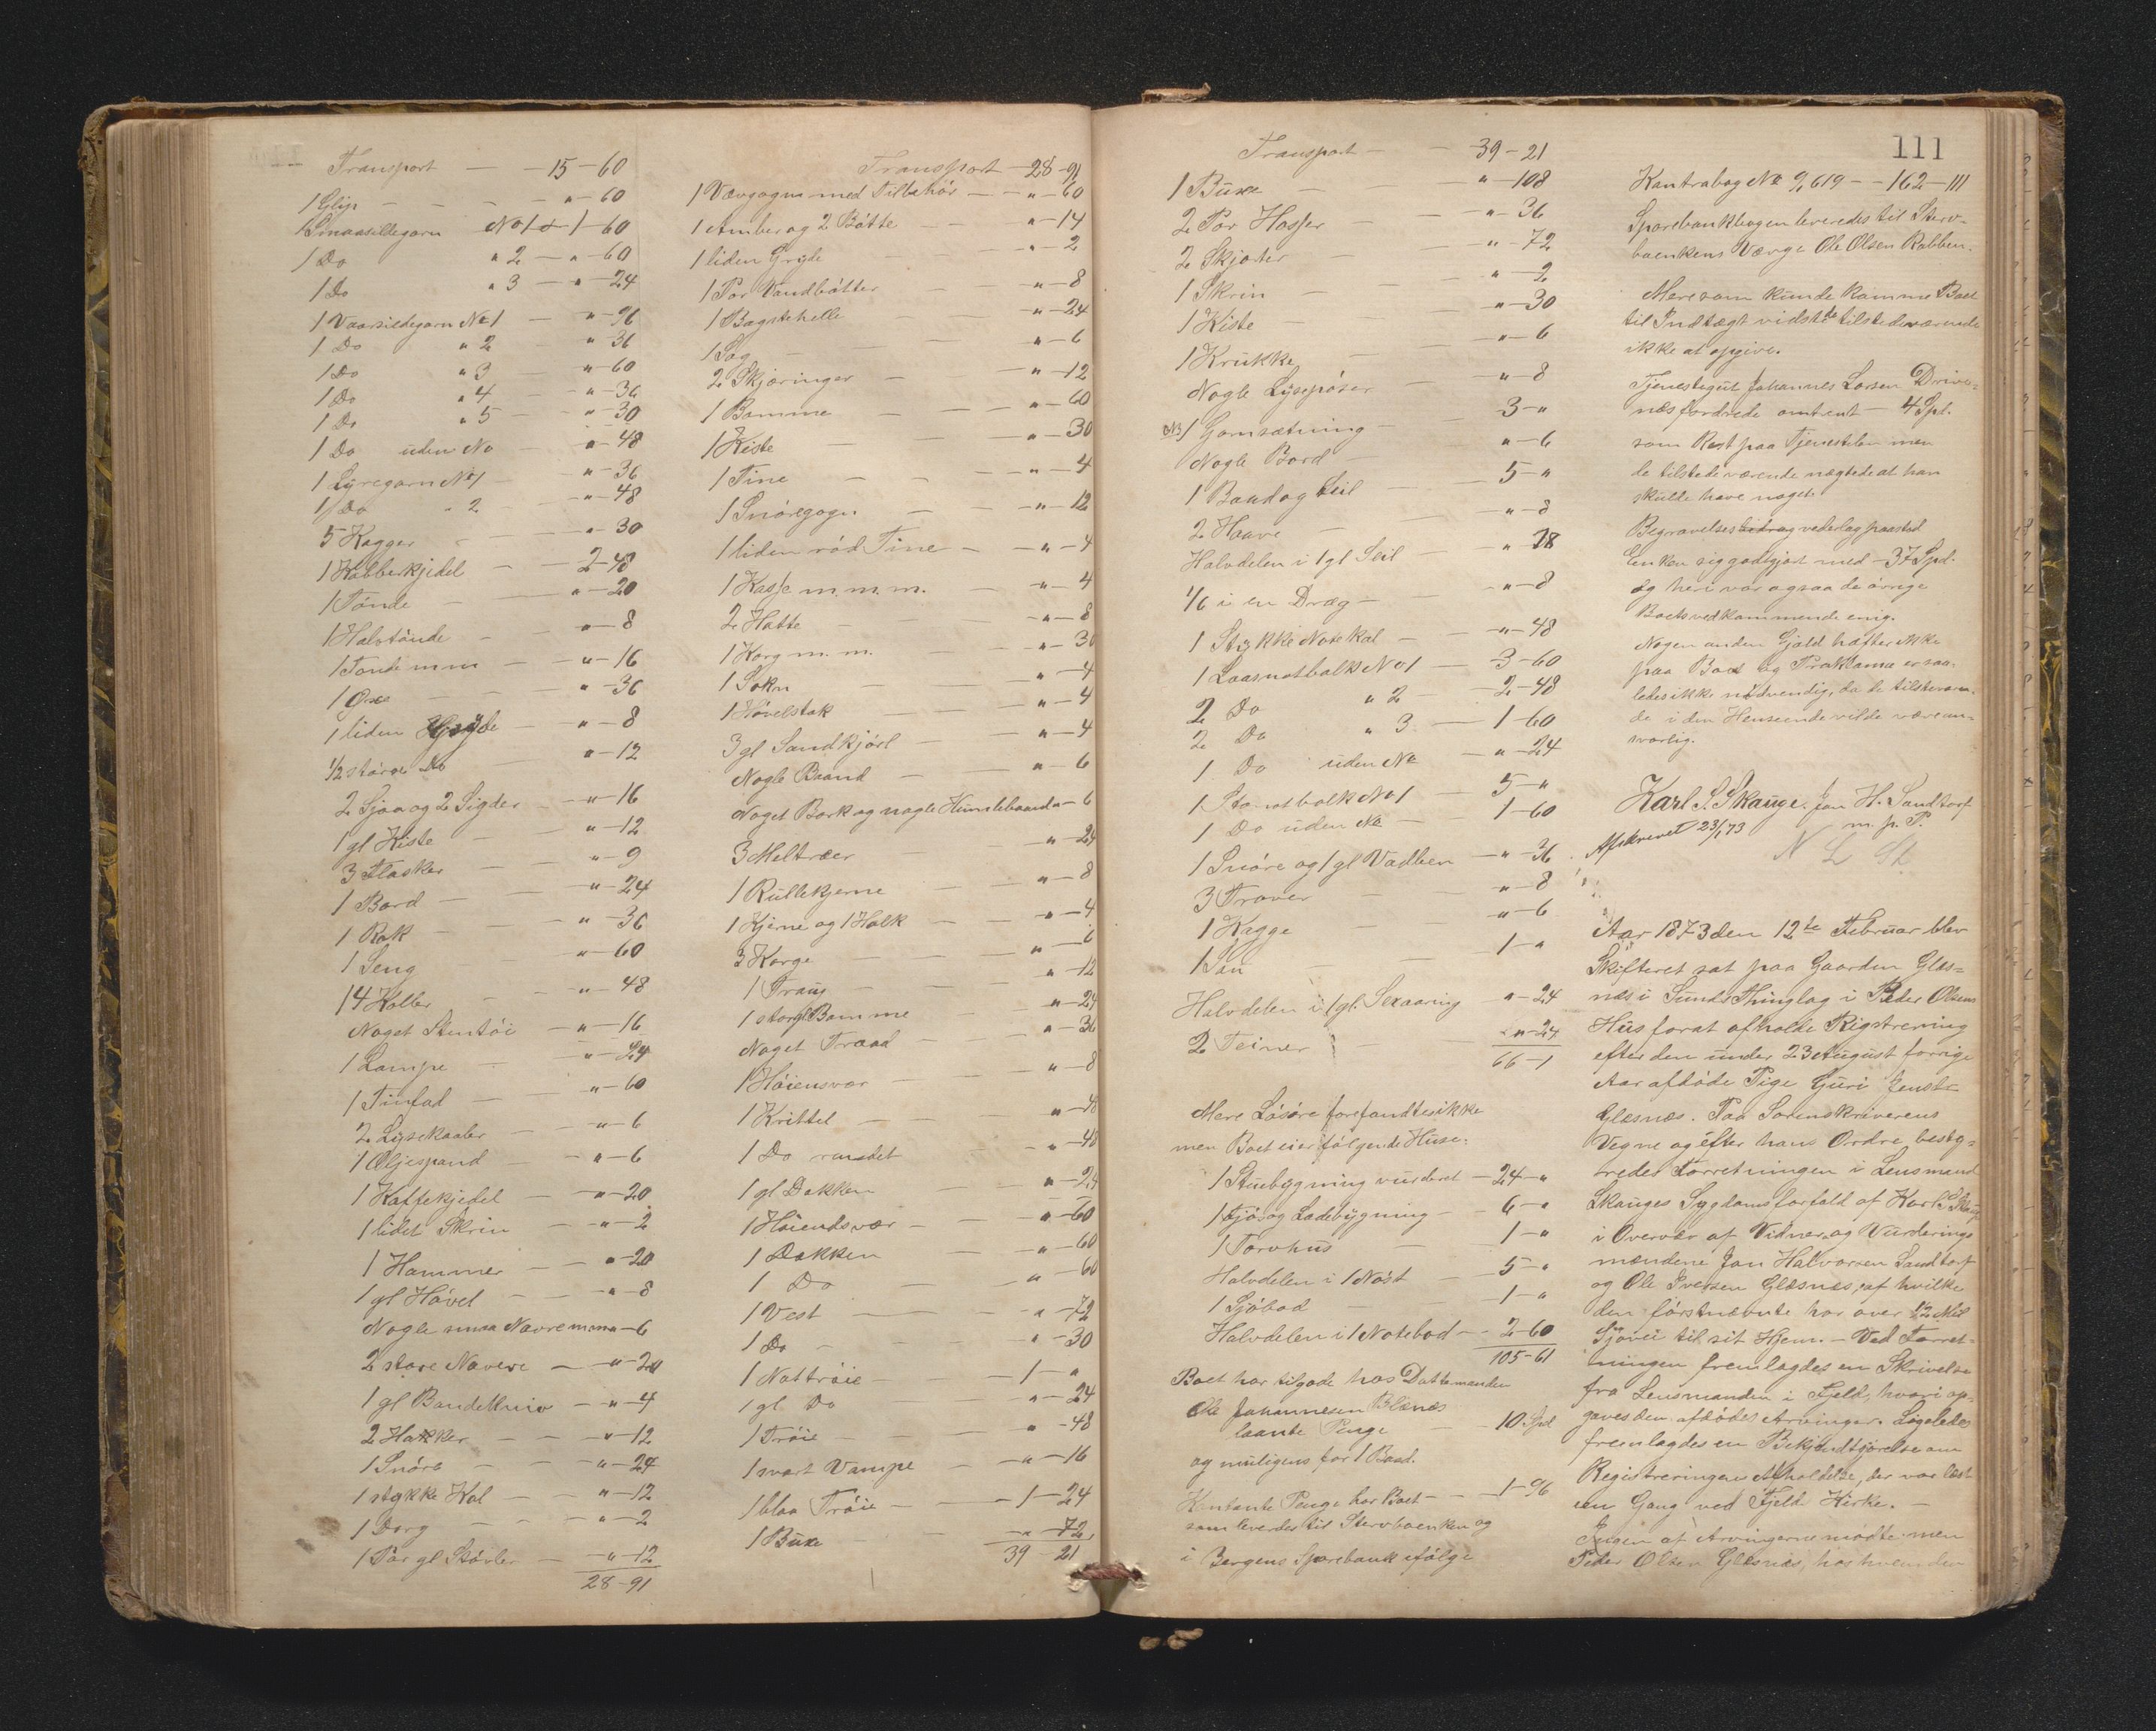 Transport — — 15—60
1 Glip — — — "—60
1 Smaasildegarn No 1 — 1—60
1 Do " 2 — "—60
1 Do " 3 — "—24
1 Vaarsildegarn No 1 — "—96
1 Do " 2 — "—36
1 Do " 3 — "—60
1 Do " 4 — "—36
1 Do " 5 — "—30
1 Do uden No — "—48
1 Lyregarn No 1 — "—36
1 Do " 2 — "—48
5 Kagger — "—30
1 Kobberkjedel — — 2—48
1 Tönde — "—20
1 Halvtönde — "—8
1 Tönde m m — "—16
1 Øxe — "—36
1 liden Gryde — "—8
1/2 större Do — "—12
2 Ljaa og 2 Sigder — "—16
1 gl Kiste — "—12
3 Flasker — "—9
1 Bord — "—24
1 Rok — "—36
1 Seng — "—60
14 Koller — "—48
Noget Stentöi — "—16
1 Lampe — "—24
1 Tinfad — "—60
2 Lysekaaler — "—6
1 Oljespand — "—6
1 Kaffekjedel — "—20
1 lidet Skrin — "—2
1 Hammer — "—20
1 gl Hövel — "—8
Nogle smaa Navre m.m. "—6
2 store Navere — "—24
1 gl Bandekniv — "—4
2 Hakker — "—12
1 Snöre — "—24
1 stykke Kol — "—12
1 Dorg — "—2
1 Par gl Stövler — "—12
28—91
Transport —28—91
1 Vævgogna med Tilbehör — "—60
1 Amber og 2 Bötte — "—14
1 liden Gryde — "—2
1 Par Vandbötter — "—8
1 Bagstehelle — "—24
1 Sag — "—6
2 Skjæringer — "—12
1 Bomme — "—60
1 Kiste — "—30
1 Tine — "—4
1 Snöregogn — "—12
1 liden röd Tine — "—4
1 Kasse m. m. m. — "—4
2 Hatte — "—8
1 Korg m. m. — "—30
1 Sokn — "—4
1 Hövelstok — "—4
3 gl Sandkjörl — "—4
Nogle Baand — "—6
Noget Bork og nogle Humlebaand "—6
3 Meltræer "—24
1 Rullekjerne — "—8
1 Kjerne og 1 Holk — "—4
3 Korge — "—6
1 Traug — "—12
1 stor gl Bomme — "—24
Noget Traad — "—36
1 Höiensvær — "—8
1 Krittel — "—48
1 Do — "—48
1 gl Dekken — "—24
1 Höiendsvær — "—60
1 Dekken — "—60
1 Do — "—60
1 Vest — "—72
1 Do — "—30
1 Nattröie — 1—"
1 gl Do "—24
1 Tröie — "—48
1 svart Vampe — "—16
1 blaa Tröie — 1—24
1 Buxe — "—72
39—21
111
Transport — 39—21
1 Buxe — "—108
2 Par Hosser — "—36
2 Skjorter — "—72
1 Skrin — "—2
1 Kiste — "—30
1 Krukke — "—6
Nogle Lysepöser — "—8
NB 1 Garnsætning — 3—"
Nogle Bord — "—6
1 Baad og Seil — 5—"
2 Haave — "—8
Halvdelen i 1 gl Seil — "—18
1/6 i en Dræg — "—8
1 Stykke Notekal — "—48
1 Laasnotbalk No 1 — 3—60
2 Do " 2 — 2—48
2 Do " 3 — 1—60
1 Do uden No — "—24
1 Stonotbolk No 1 — 5—"
1 Do uden No — 1—60
1 Snöre og 1 gl Vadben — "—36
3 Traver — "—8
1 Kagge — "—6
1 Sau — 1—"
Halvdelen i 1 gl. Sexaaring "—24
2 Teiner — "—24
66—1
Mere Lösöre forefandtes ikke
men Boet eier fölgende Huse:
1 Stuebygning vurderet —24—"
1 Fjös og Ladebygning — 6—"
1 Torvhus — 1—"
Halvdelen i 1 Nöst — 5—"
1 Sjöbod — 1—"
Halvdelen i 1 Notebod — 2—60
105—61
Boet har tilgode hos Dattermanden
Ole Johannesen Blænes
laante Penge — 10. Spd
og muligens for 1 Baad.
Kontante Penge har Boet — — 1—96
som leverdes til Stervboenken og
i Bergens Sparebank ifölge
Kontrabog No 9/619 — —162—111
Sparebankbogen leveredes til Sterv-
boenkens Værge Ole Olsen Rabben.
Mere som kunde komme Boet
til Indtægt vidste de tilstedeværende
ikke at opgive.
Tjenestegut Johannes Larsen Drive-
næs fordrede omtrent — 4 Spd.
som Rest paa Tjenestelön men
de tilstedeværende nægtede at han
skulde have noget.
Begravelses bidrag vederlag paastod
Enken sig godtgjort med —37 Spd.
og heri var ogsaa de övrige
Boets vedkommende enig.
Nogen anden Gjæld hæfter ikke
paa Boet og Proklama er saa-
ledes ikke nödvendig, da de tilsteværen-
de i den Henseende vilde være an-
svarlig.
Karl S. Skauge. Jon H. Sandtorf
m. p. P.
Afskrevet 23/1 73
N L St
Aar 1873 den 12te Februar blev
Skifteret sat paa Gaarden Glæs-
næs i Sunds Thinglag i Peder Olsens
Hus forat afholde Rigstrering
efter den under 23 August forrige
Aar afdöde Pige Guri Jensd.
Glæsnæs. Paa Sorenskriverens
Vegne og efter hans Ordre besty-
redes Forretningen i Lensmand
Skauges Sygdomsforfald af Karl S. Skauge
i Overvær af Vidner og Vurderings
mændene Jon Halvorsen Sandtorf
og Ole Iversen Glæsnæs, af hvilke
den förstnævnte har over 1/2 Mil
Sjövei til sit Hjem. — Ved Forret-
ningen fremlagdes en Skrivelse
fra Lensmanden i Fjeld, hvori op-
gaves den afdödes Arvinger. Ligeledes
fremlagdes en Bekjendtgjörelse om
Registreringens Afholdelse, der var læst
en Gang ved Fjeld Kirke. —
Ingen af Arvingerne mödte men
Peder Olsen Glæsnæs, hos hvem den